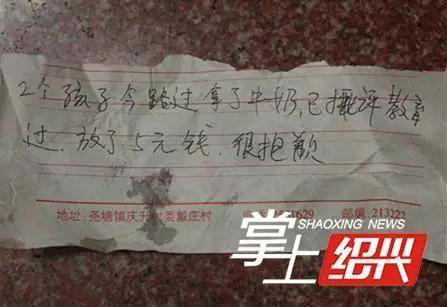 2个孩子今路过拿了牛奶,已批评教育
过.放了5元钱.很抱歉
地址:尧塘镇庆升村委戴庄村 1629 邮编:213222
SHAOXING NEWS
掌上绍兴